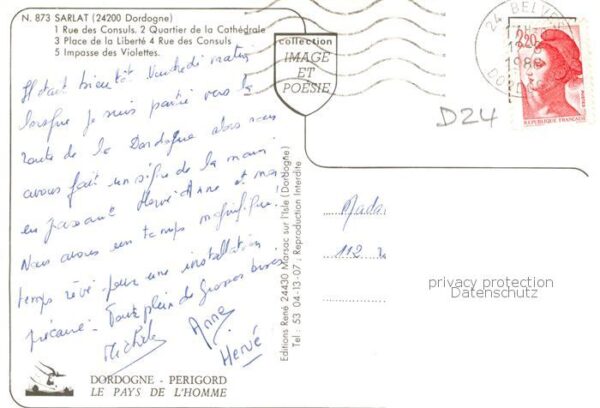 N. 873 SARLAT (24200 Dordogne)
1 Rue des Consuls. 2 Quartier de la Cathédrale
3 Place de la Liberté 4 Rue des Consuls
5 Impasse des Violettes.
collection
IMAGE
ET
POÉSIE
24 BELV
1986
DORDOGNE
2,20
REPUBLIQUE FRANÇAISE
D24
Il était bientôt Vendredi matin
lorsque je suis partie vers la
route de la Dordogne alors nous
avons fait un signe de la main
en passant Hervé Anne et moi
Nous avons un temps magnifique!
temps rêvé pour une installation
précaire. Tout plein de grosses bises.
Michèle
Anne
Hervé
Editions René 24430 Marsac sur l'Isle (Dordogne)
Tel : 53 04-13-07 : Reproduction Interdite
Madam
112
privacy protection
Datenschutz
DORDOGNE - PERIGORD
LE PAYS DE L'HOMME